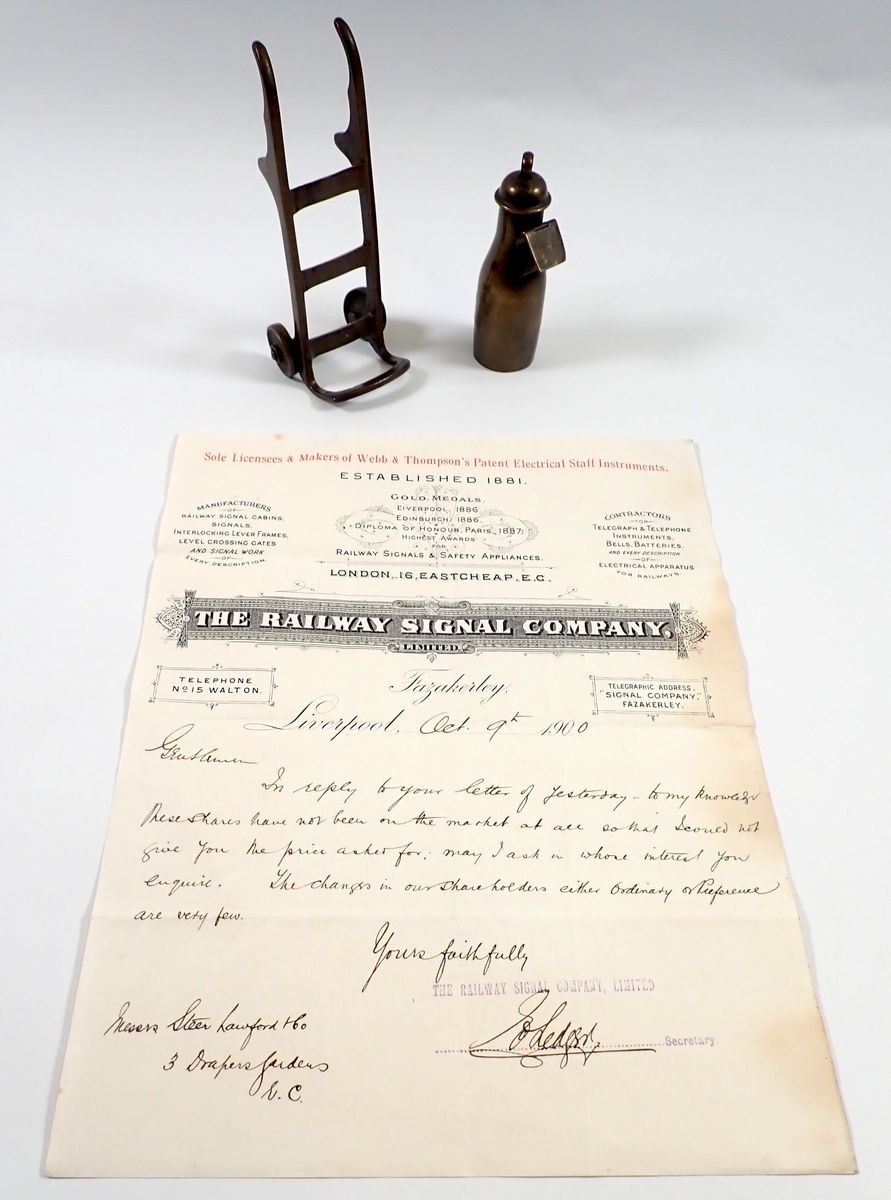 Sole Licensees & Makers of Webb & Thompson's Patent Electrical Staff Instruments.
ESTABLISHED 1881.
MANUFACTURERS
OF
RAILWAY SIGNAL CABINS,
SIGNALS,
INTERLOCKING LEVER FRAMES,
LEVEL CROSSING GATES
AND SIGNAL WORK
OF
EVERY DESCRIPTION.
GOLD MEDALS.
LIVERPOOL, 1886.
EDINBURGH, 1886.
DIPLOMA OF HONOUR, PARIS, 1887.
HIGHEST AWARDS
FOR
RAILWAY SIGNALS & SAFETY APPLIANCES.
CONTRACTORS
FOR
TELEGRAPH & TELEPHONE
INSTRUMENTS,
BELLS, BATTERIES,
AND EVERY DESCRIPTION
OF
ELECTRICAL APPARATUS
FOR RAILWAYS.
LONDON, 16, EASTCHEAP. E.C.
THE RAILWAY SIGNAL COMPANY,
LIMITED.
TELEPHONE
No 15 WALTON.
Fazakerley,
TELEGRAPHIC ADDRESS.
"SIGNAL COMPANY,"
FAZAKERLEY.
Liverpool, Oct. 9th 1900
Gentlemen
In reply to your letter of yesterday - to my knowledge
these shares have not been on the market at all so that I could not
give you the price asked for; may I ask in whose interest you
enquire. The changes in our shareholders either Ordinary or Preference
are very few.
Yours faithfully
THE RAILWAY SIGNAL COMPANY, LIMITED
Ledger. Secretary.
Messrs Steer Lawford & Co
3 Drapers Gardens
E.C.